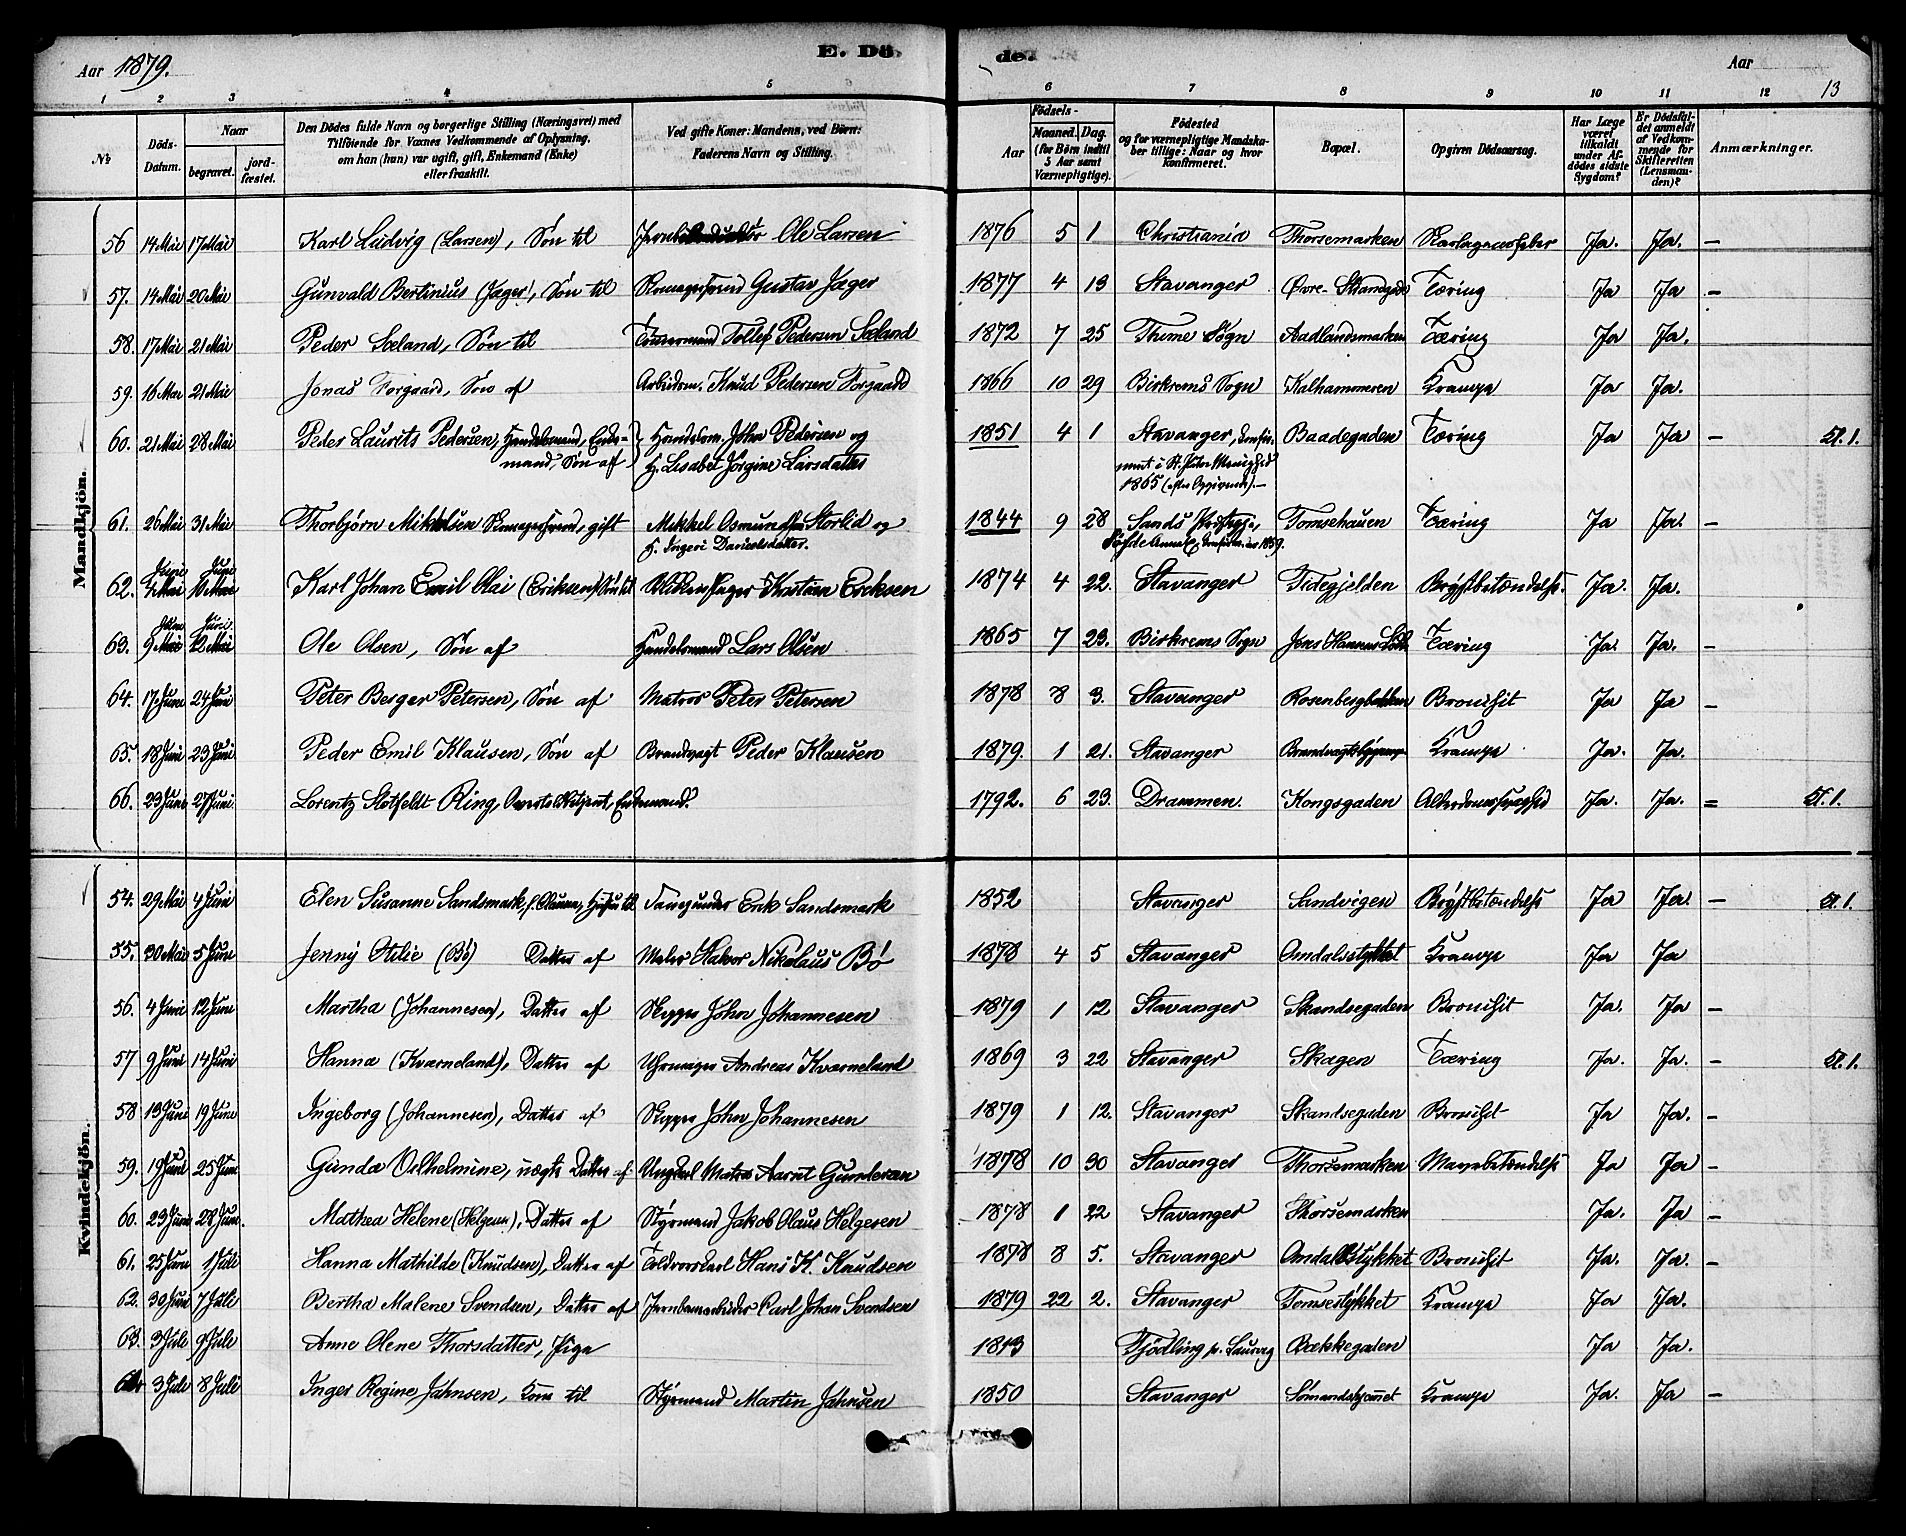 Aar 1879. E. Dö- de. Aar
13
1 2 3 4 5 6 7 8 9 10 11 12
№ Döds-Datum. Naar begravet. jordfæstet. Den Dödes fulde Navn og borgerlige Stilling (Næringsvei) med Tilföiende for Voxnes Vedkommende af Oplysning, om han (hun) var ugift, gift, Enkemand (Enke) eller fraskilt. Ved gifte Koner: Mandens, ved Börn: Faderens Navn og Stilling. Födsels- Aar Maaned. Dag. (for Börn indtil 5 Aar samt Værnepligtige). Födested og for værnepligtige Mandskaber tillige: Naar og hvor konfirmeret. Bopæl. Opgiven Dödsaarsag. Har Læge været tilkaldt under Afdödes sidste Sygdom? Er Dödsfaldet anmeldt af Vedkommende for Skifteretten (Lensmanden)? Anmærkninger.
Mandkjön.
56 14 Mai 17 Mai Karl Ludvig (Larsen), Søn til Ole Larsen 1876 5 1 Christiania Thorsemarken Skarlagensfeber Ja. Ja. —
57. 14 Mai 20 Mai Gunvald Bertinius (Jæger), Søn til Skomagersvend Gustav Jæger 1877 4 13 Stavanger Øvre-Strandgade Tæring Ja Ja —
58. 17 Mai 21 Mai Peder Sæland, Søn til Tømmermand Tollef Pedersen Sæland 1872 7 25 Thime Sogn Aadlandsmarken Tæring Ja Ja.
59. 16 Mai 21 Mai Jonas Forgaard, Søn af Arbeidsm. Knud Pedersen Forgaard 1866 10 29 Birkrems Sogn Kalhammeren Krampe Ja Ja.
60. 21 Mai 28 Mai Peder Laurits Pedersen, Handelsmand, Enkemand, Søn af Handelsm. John Pedersen og H. Lisabet Jørgine Larsdatter 1851 4 1 Stavanger, konfirmeret i St. Petri Menighed 1865 (efter Opgivende).— Baadegaden Tæring Ja Ja — A. 1.
61. 26 Mai 31 Mai Thorbjørn Mikkelsen Skomagersvend, gift Mikkel Osmundsen Storlid og H. Ingeri Danielsdatter. 1844 9 28 Sands Præstegj., 1859. Tomsehauen Tæring Ja Ja. —
62. 4 Juni 10 Juni Karl Johan Emil Olai (Eriksen) Søn til Blikkenslager Kristian Eriksen 1874 4 22. Stavanger Tidegjelden Brystbetændelse. Ja. Ja.
63. 9 12 Juni. Ole Olsen, Søn af Handelsmand Lars Olsen 1865 7 23. Birkrems Sogn Jens Hansens Tæring Ja. Ja. —
64. 17 Juni 24 Juni Peter Berger Petersen, Søn af Matros Peter Petersen 1878 8 3. Stavanger Rosenbergbakken Bronchit Ja Ja —
65. 18 Juni 23 Juni. Peder Emil Klausen, Søn af Brandvagt Peder Klausen 1879. 1 21. Stavanger Krampe Ja. Ja.
66. 23 Juni 27 Juni. Lorentz Stotfeldt Ring, Enkemand. 1792. 6 23. Drammen. Kongsgaden Alderdomssvaghed Ja. Ja. = A. 1.
Kvindekjön.
54. 29 Mai 4 Juni Elen Susanne Sandsmark, Hustru til Erik Sandsmark 1852 Stavanger Sandvigen Brystbetændelse Ja Ja. — A. 1.
55. 30 Mai 5 Juni Jenny Otilie (Bø) Datter af Maler Halvor Nikolaus Bø 1878 4 5 Stavanger Omdalsstykket Krampe Ja Ja
56. 4 Juni 12 Juni Martha (Johannesen), Datter af Skipper John Johannesen 1879 1 12 Stavanger Skandsegaden Bronchit Ja. Ja —
57 9 Juni 14 Juni Hanna (Kværneland), Datter af Uhrmager Andreas Kværneland 1869 3 22 Stavanger Skagen Tæring Ja. Ja. — A. 1.
58 13 Juni 19 Juni Ingeborg (Johannesen), Datter af Skipper John Johannesen 1879 1 12. Stavanger Skandsegaden Bronchit. Ja Ja. —
59. 19 Juni 25 Juni Gunda Vilhelmine, uægte Datter af Ungkarl Matros Aarret Gundersen 1878 10 30 Stavanger Thorsemarken Mavebetændelse Ja Ja —
60. 23 Juni 28 Juni. Mathea Helene (Helgesen), Datter af Styrmand Jakob Olaus Helgesen 1878 1 22 Stavanger Thorsemarken Ja. Ja —
61. 25 Juni 1 Juli Hanna Mathilde (Knudsen), Datter af Toldvorkarl Hans K. Knudsen 1878 8 5. Stavanger Omdalsstykket Bronchit Ja. Ja. —
62. 30 Juni 7 Juli Bertha Malene Svendsen, Datter af Jernbanearbeider Carl Johan Svendsen 1879 22 2. Stavanger Tomsestykket Krampe Ja Ja.
63. 3 Juli 9 Juli Anne Olene Thorsdatter, Pige 1813 Tjödling pr. Laurvig Bakkegaden Ja Ja.
64 3 Juli 8 Juli Inger Regine Jahnsen, Kone til Styrmand Martin Jahnsen 1850 Stavanger Krampe Ja. Ja —